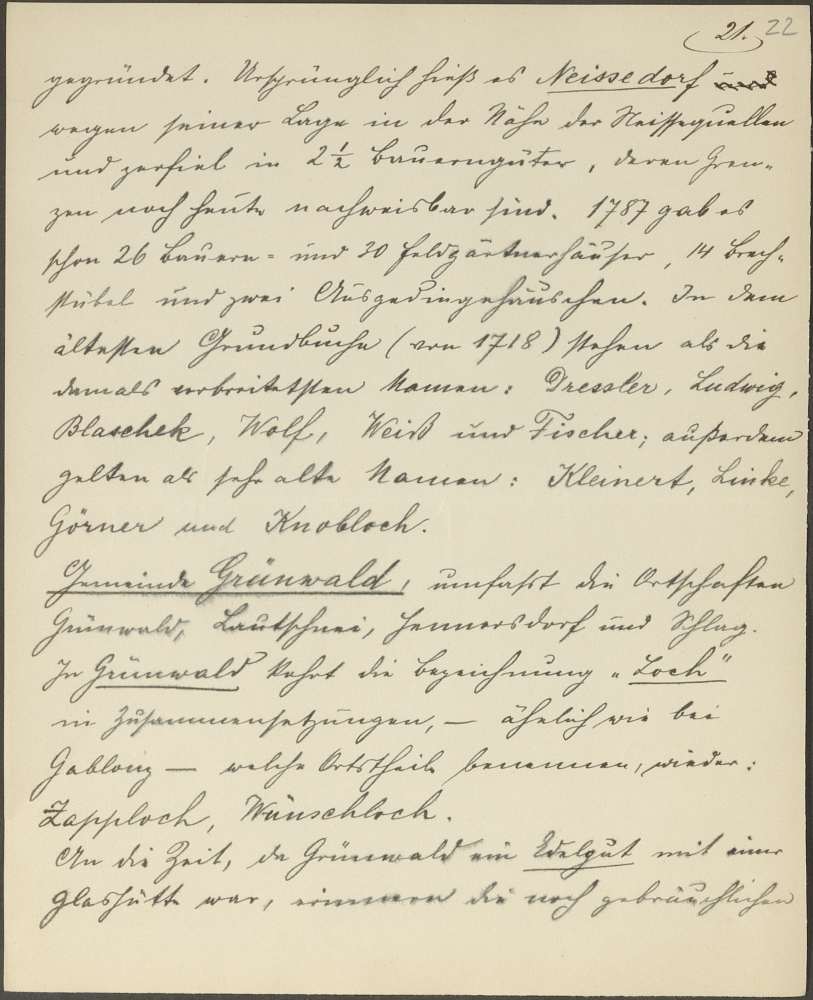 21. 22
gegründet. Ursprünglich hieß es Neissedorf
wegen seiner Lage in der Nähe der Neissequellen
und zerfiel in 2 1/2 Bauerngüter, deren Gren-
zen noch heute nachweisbar sind. 1787 gab es
schon 26 Bauern- und 30 Feldgärtnerhäuser, 14 Brech-
stübel und zwei Ausgedingehäuschen. In dem
ältesten Grundbuche (von 1718) stehen als die
damals verbreitetsten Namen: Dressler, Ludwig,
Blaschek, Wolf, Weiß und Fischer; außerdem
gelten als sehr alte Namen: Kleinert, Linke,
Görner und Knobloch.
Gemeinde Grünwald, umfasst die Ortschaften
Grünwald, Lautschnei, Hennersdorf und Schlag.
In Grünwald kehrt die Bezeichnung "Loch"
in Zusammensetzungen, — ähnlich wie bei
Gablonz — welche Ortstheile benennen, wieder:
Zapploch, Wünschloch.
An die Zeit, da Grünwald ein Edelgut mit einer
Glashütte war, erinnern die noch gebräuchlichen